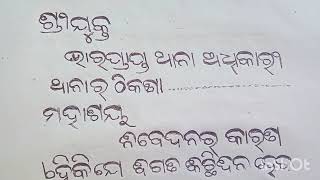 ଶ୍ରୀଯୁକ୍ତ
ଭାରପ୍ରାପ୍ତ ଥାନା ଅଧିକାରୀ
ଥାନାର ଠିକଣା ....................
ମହାଶୟ
ନିବେଦନର କାରଣ
କି ମୋ ବଗତ କିଛିଦିନ